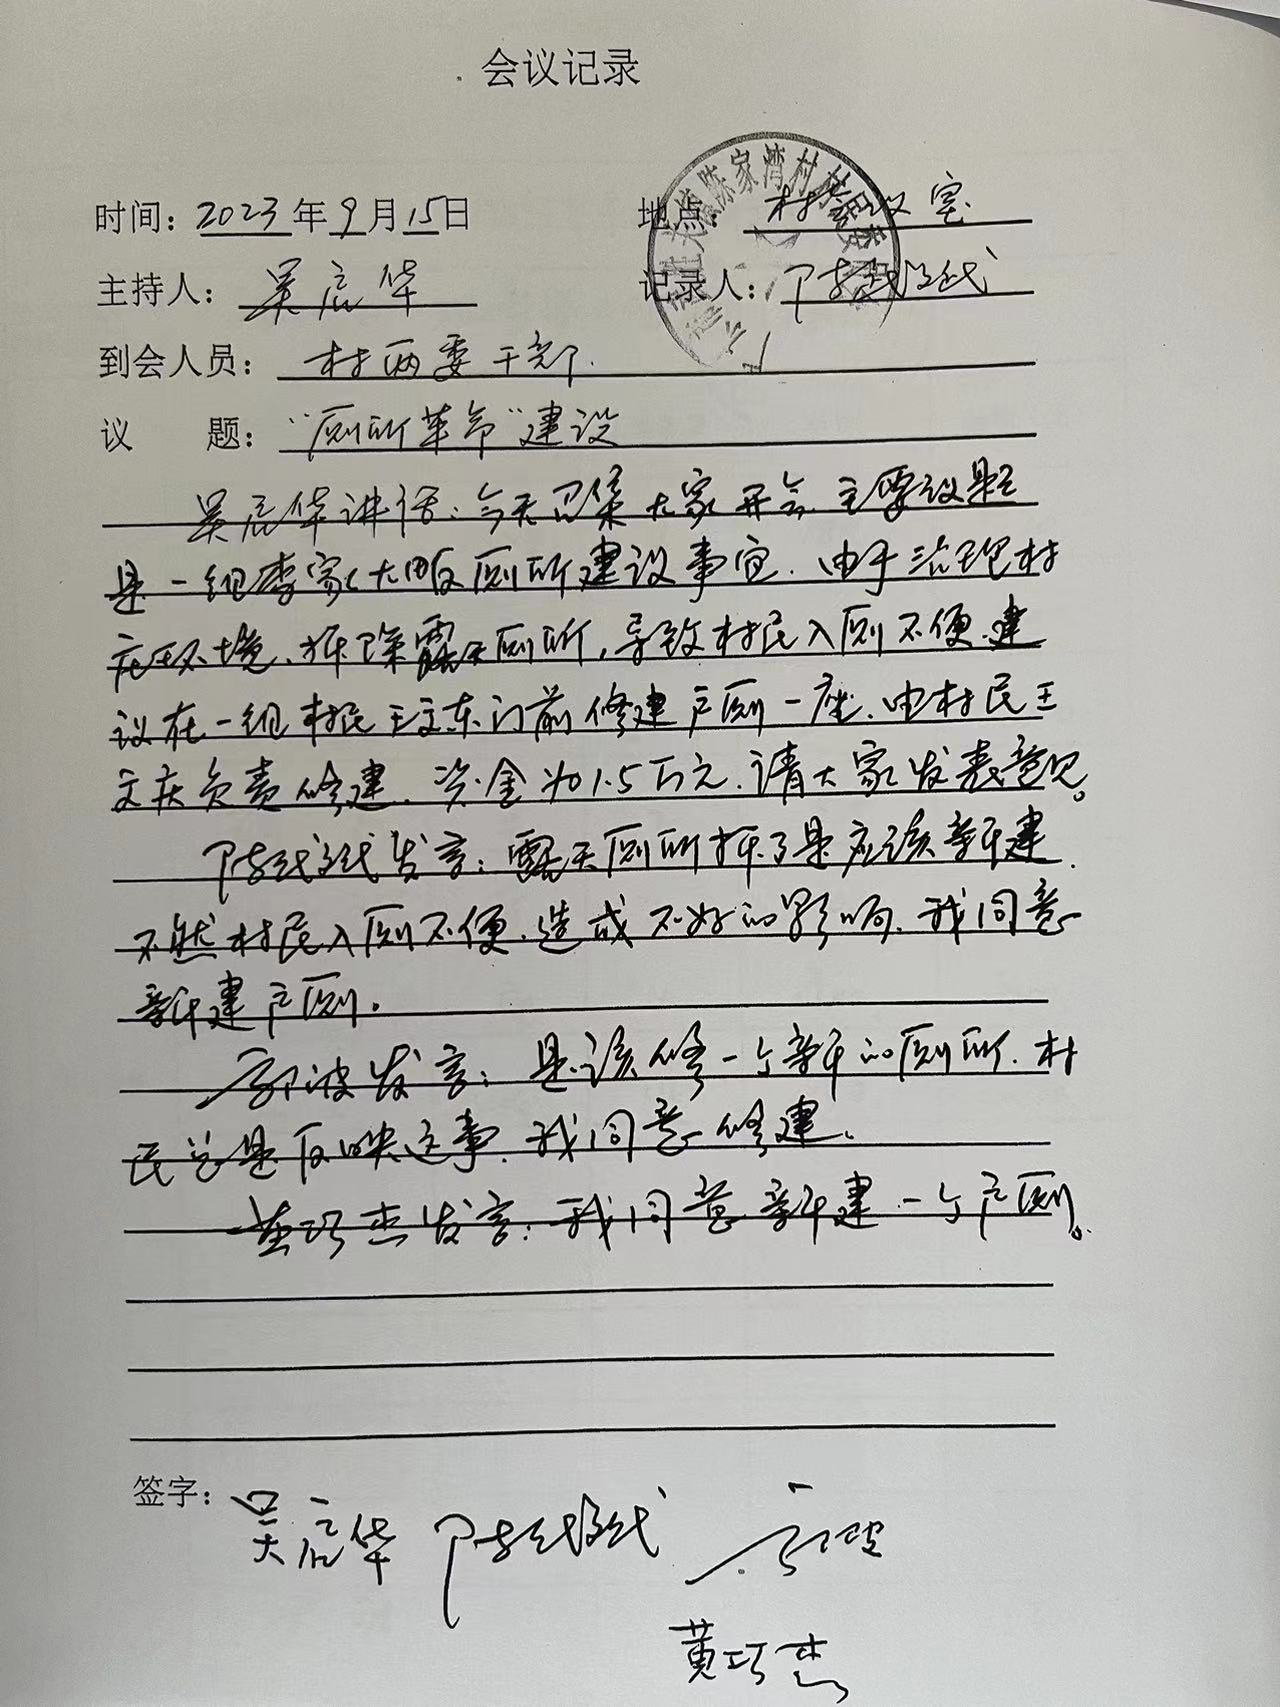 会议记录
时间：2023年9月15日 地点：村 议室
陈家湾村村民委
主持人：吴启华 记录人：陈
到会人员：村两委干部.
议 题："厕所革命"建设
吴启华讲话：今天召集大家开会.主要议题
是一组李家大畈厕所建设事宜.由于治理村
庄环境.拆除露天厕所,导致村民入厕不便.建
议在一组村民王文东门前修建户厕一座.由村民王
文 负责修建.资金为1.5万元.请大家发表意见。
陈 发言：露天厕所拆了是应该新建.
不然村民入厕不便.造成不好的影响.我同意
新建户厕。
郭波发言：是该修一个新的厕所.村
民总是反映这事.我同意修建。
黄巧杰发言：我同意新建一个户厕。
签字：吴启华 陈 郭波
黄巧杰